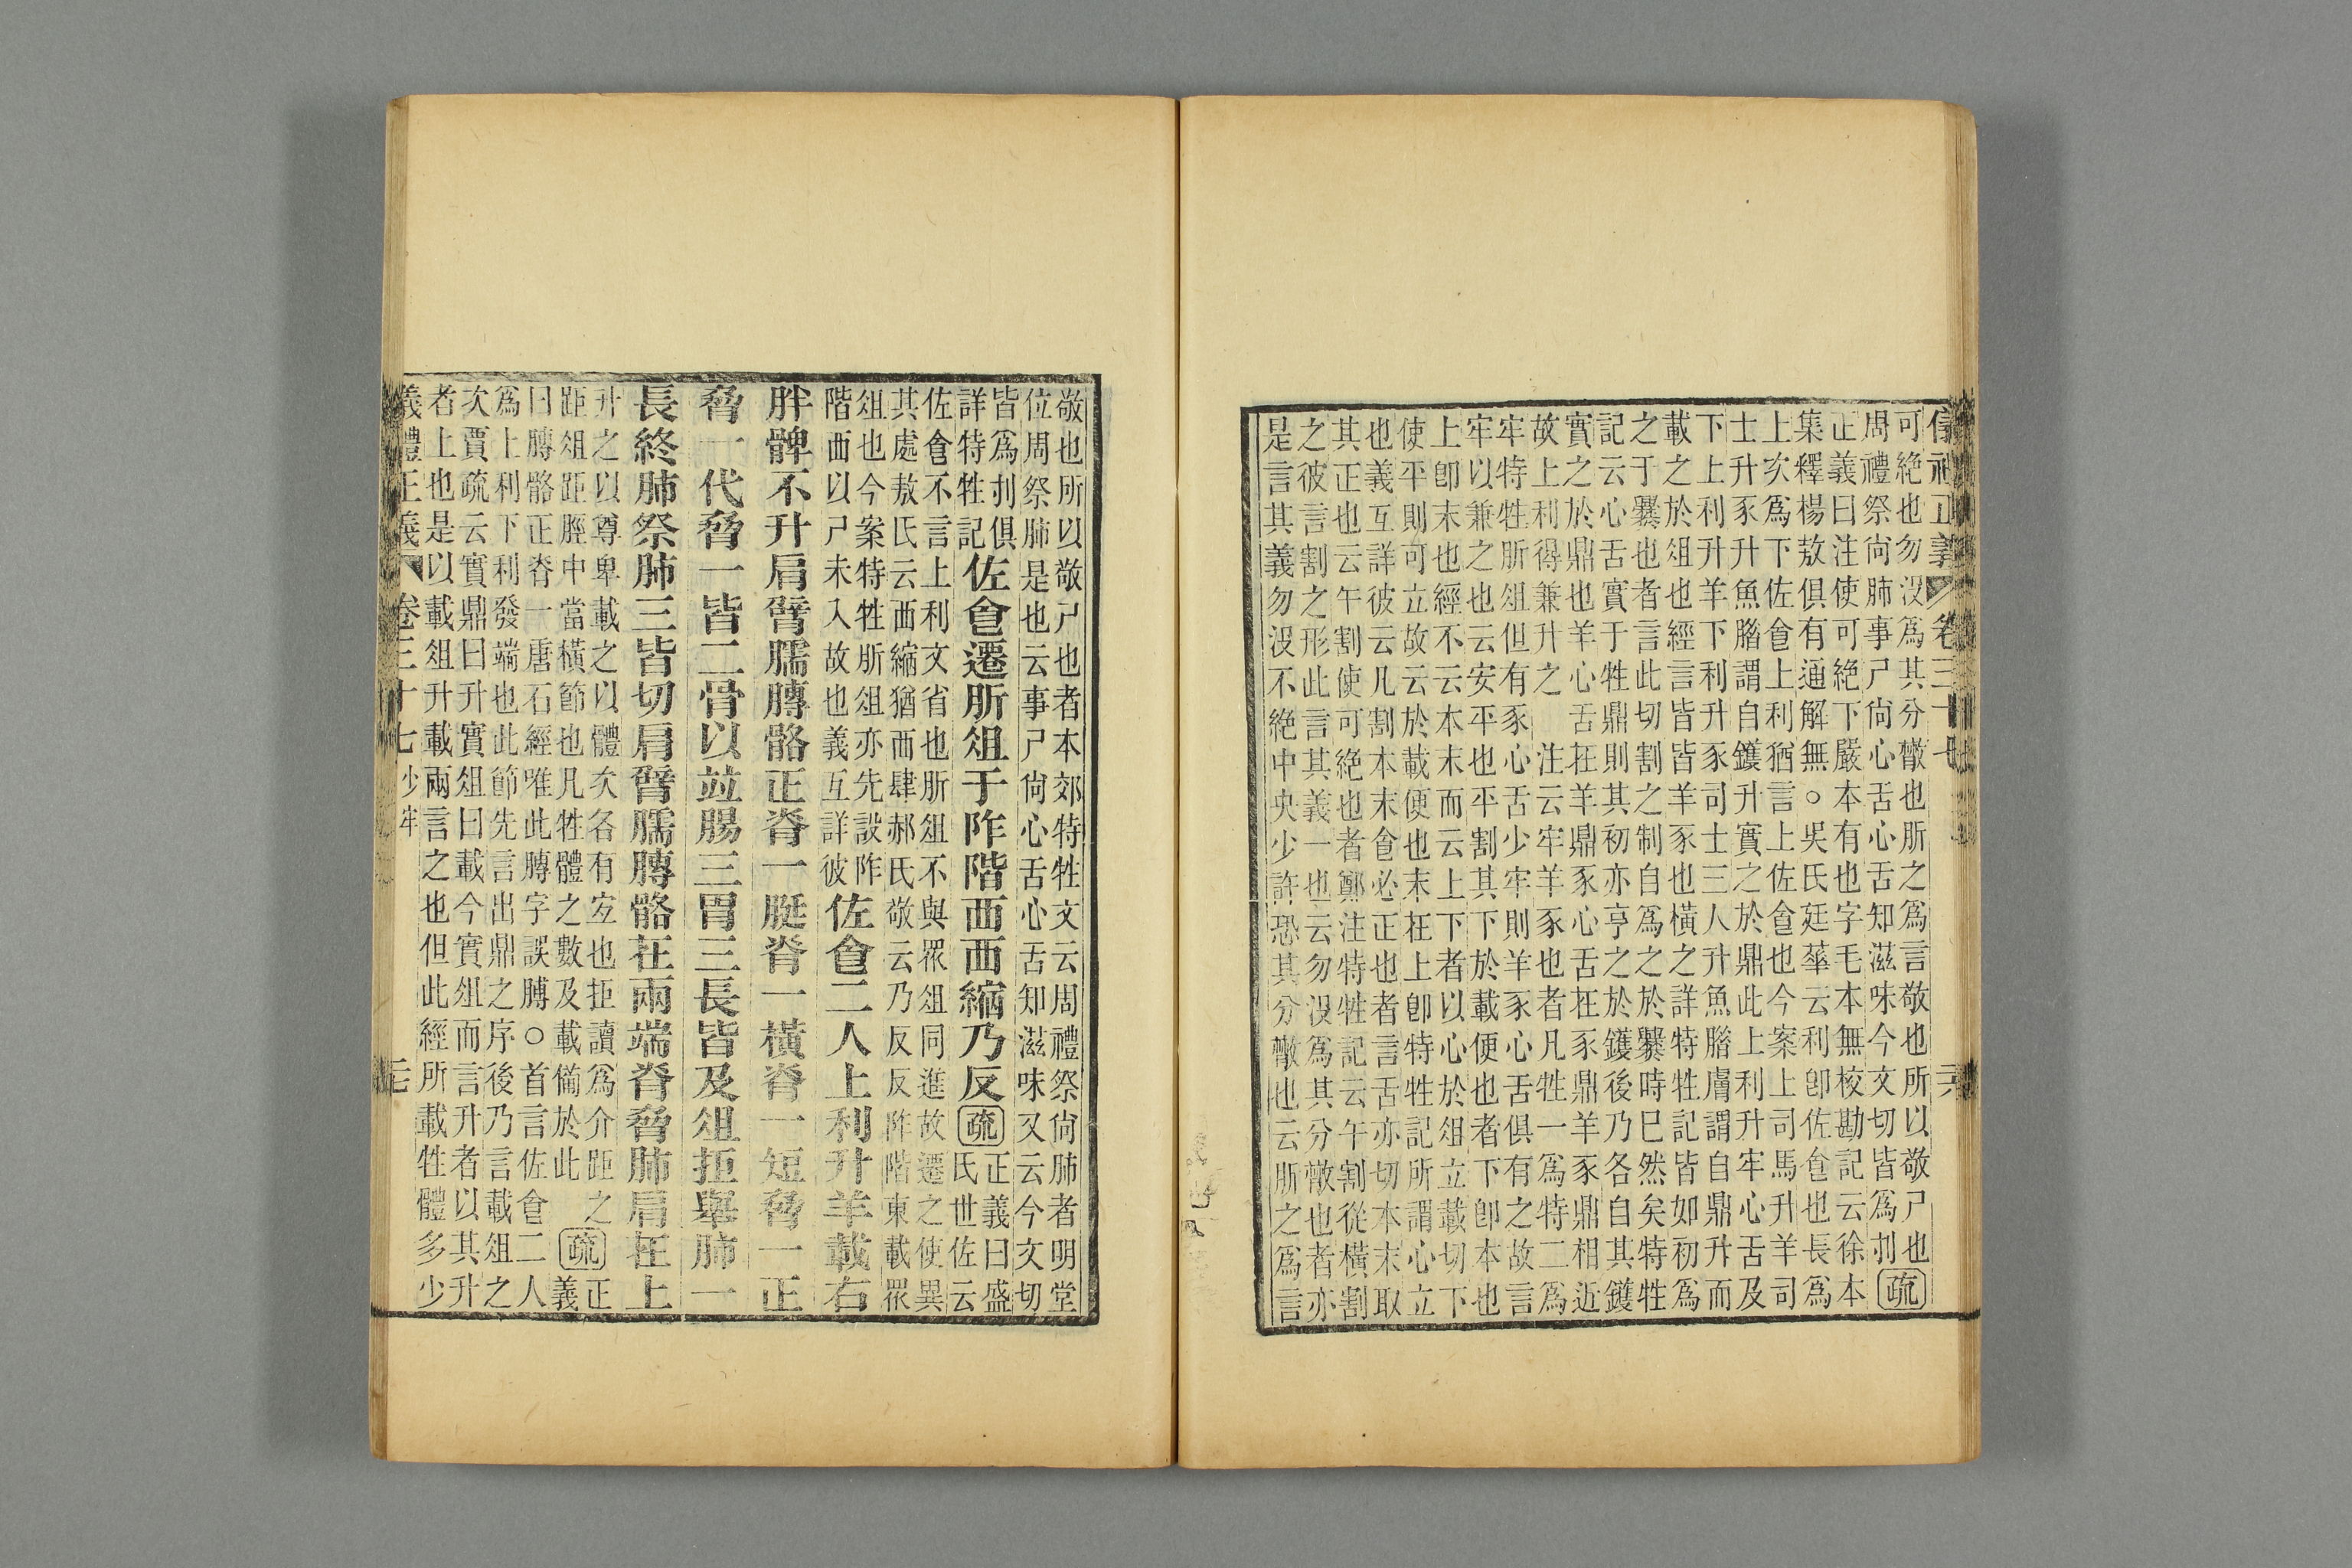 儀禮正義 卷三十七
可絶也勿没爲其分㪚也肵之爲言敬也所以敬尸也
周禮祭尙肺事尸尙心舌心舌知滋味今文切皆爲刌 疏
正義曰注使可絶下嚴本有也字毛本無校勘記云徐本
集釋楊敖俱有通解無○吳氏廷華云利卽佐食也長爲
上次爲下佐食上利猶言上佐食也今案上司馬升羊司
士升豕升魚腊謂自鑊升實之於鼎此上利升牢心舌及
下上利升羊下利升豕司士三人升魚腊膚謂自鼎升而
載之於俎也經言皆皆羊豕也橫之詳特牲記皆如初爲
之于爨也者言此切割之制自爲之於爨時巳然矣特牲
記云心舌實于牲鼎則其初亦亨之於鑊後乃各自其鑊
實之於鼎也羊心舌在羊鼎豕心舌在豕鼎羊豕鼎相近
故上利得兼升之 注云牢羊豕也者凡牲一爲特二爲
牢特牲肵俎但有豕心舌少牢則羊豕心舌俱有之故言
牢以兼之也云安平也平割其下於載便也者下卽本也
上卽末也經不云本末而云上下者以心於俎立載切下
使平則可立故云於載便也末在上卽特牲記所謂心立
也義互詳彼云凡割本末食必正也者言舌亦切本末取
其正也云午割使可絶也者鄭注特牲記云午割從橫割
之彼言割之形此言其義一也云勿没爲其分㪚也者亦
是言其義勿没不絶中央少許恐其分㪚也云肵之爲言
敬也所以敬尸也者本郊特牲文云周禮祭尙肺者明堂
位周祭肺是也云事尸尙心舌心舌知滋味又云今文切
皆爲刌俱
詳特牲記
佐食遷肵俎于阼階西西縮乃反 疏
正義曰盛
氏世佐云
佐食不言上利文省也肵俎不與眾俎同進故遷之使異
其處敖氏云西縮猶西肆郝氏敬云乃反反阼階東載眾
俎也今案特牲肵俎亦先設阼
階西以尸未入故也義互詳彼
佐食二人上利升羊載右
胖髀不升肩臂臑膊骼正脊一脡脊一橫脊一短脅一正
脅一代脅一皆二骨以竝腸三胃三長皆及俎拒舉肺一
長終肺祭肺三皆切肩臂臑膊骼在兩端脊脅肺肩在上
升之以尊卑載之以體次各有宜也拒讀爲介距之
距俎距脛中當橫節也凡牲體之數及載備於此
疏
正
義
曰膊骼正脊一唐石經唯此膊字誤膞○首言佐食二人
爲上利下利發端也此節先言出鼎之序後乃言載俎之
次賈疏云實鼎曰升實俎曰載今實俎而言升者以其升
者上也是以載俎升載兩言之也但此經所載牲體多少
禮正義 卷三十七 少牢